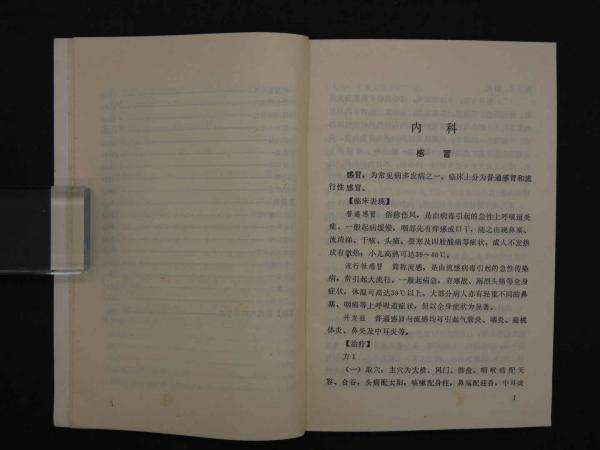 内 科
感 冒
感冒，为常见病多发病之一。临床上分为普通感冒和流
行性感冒。
【临床表现】
普通感冒 俗称伤风，是由病毒引起的急性上呼吸道炎
症。一般起病缓慢，咽部先有痒感或口干，随之出现鼻塞、
流清涕、干咳、头痛、畏寒及四肢酸痛等症状，成人不发热
或有微热，小儿高热可达39～40℃。
流行性感冒 简称流感，是由流感病毒引起的急性传染
病，常引起大流行。一般起病急，有寒战、剧烈头痛等全身
症状，体温可高达39℃以上。大部分病人亦有轻重不同的鼻
塞、咽痛等上呼吸道症状，但以全身症状为显著。
并发症 普通感冒与流感均可引起气管炎、咽炎、扁桃
体炎、鼻炎及中耳炎等。
【治疗】
方1
（一）取穴：主穴为大椎、风门、肺俞，咽喉痛配天
容、合谷，头痛配太阳，咳嗽配身柱，鼻塞配迎香，中耳炎
1